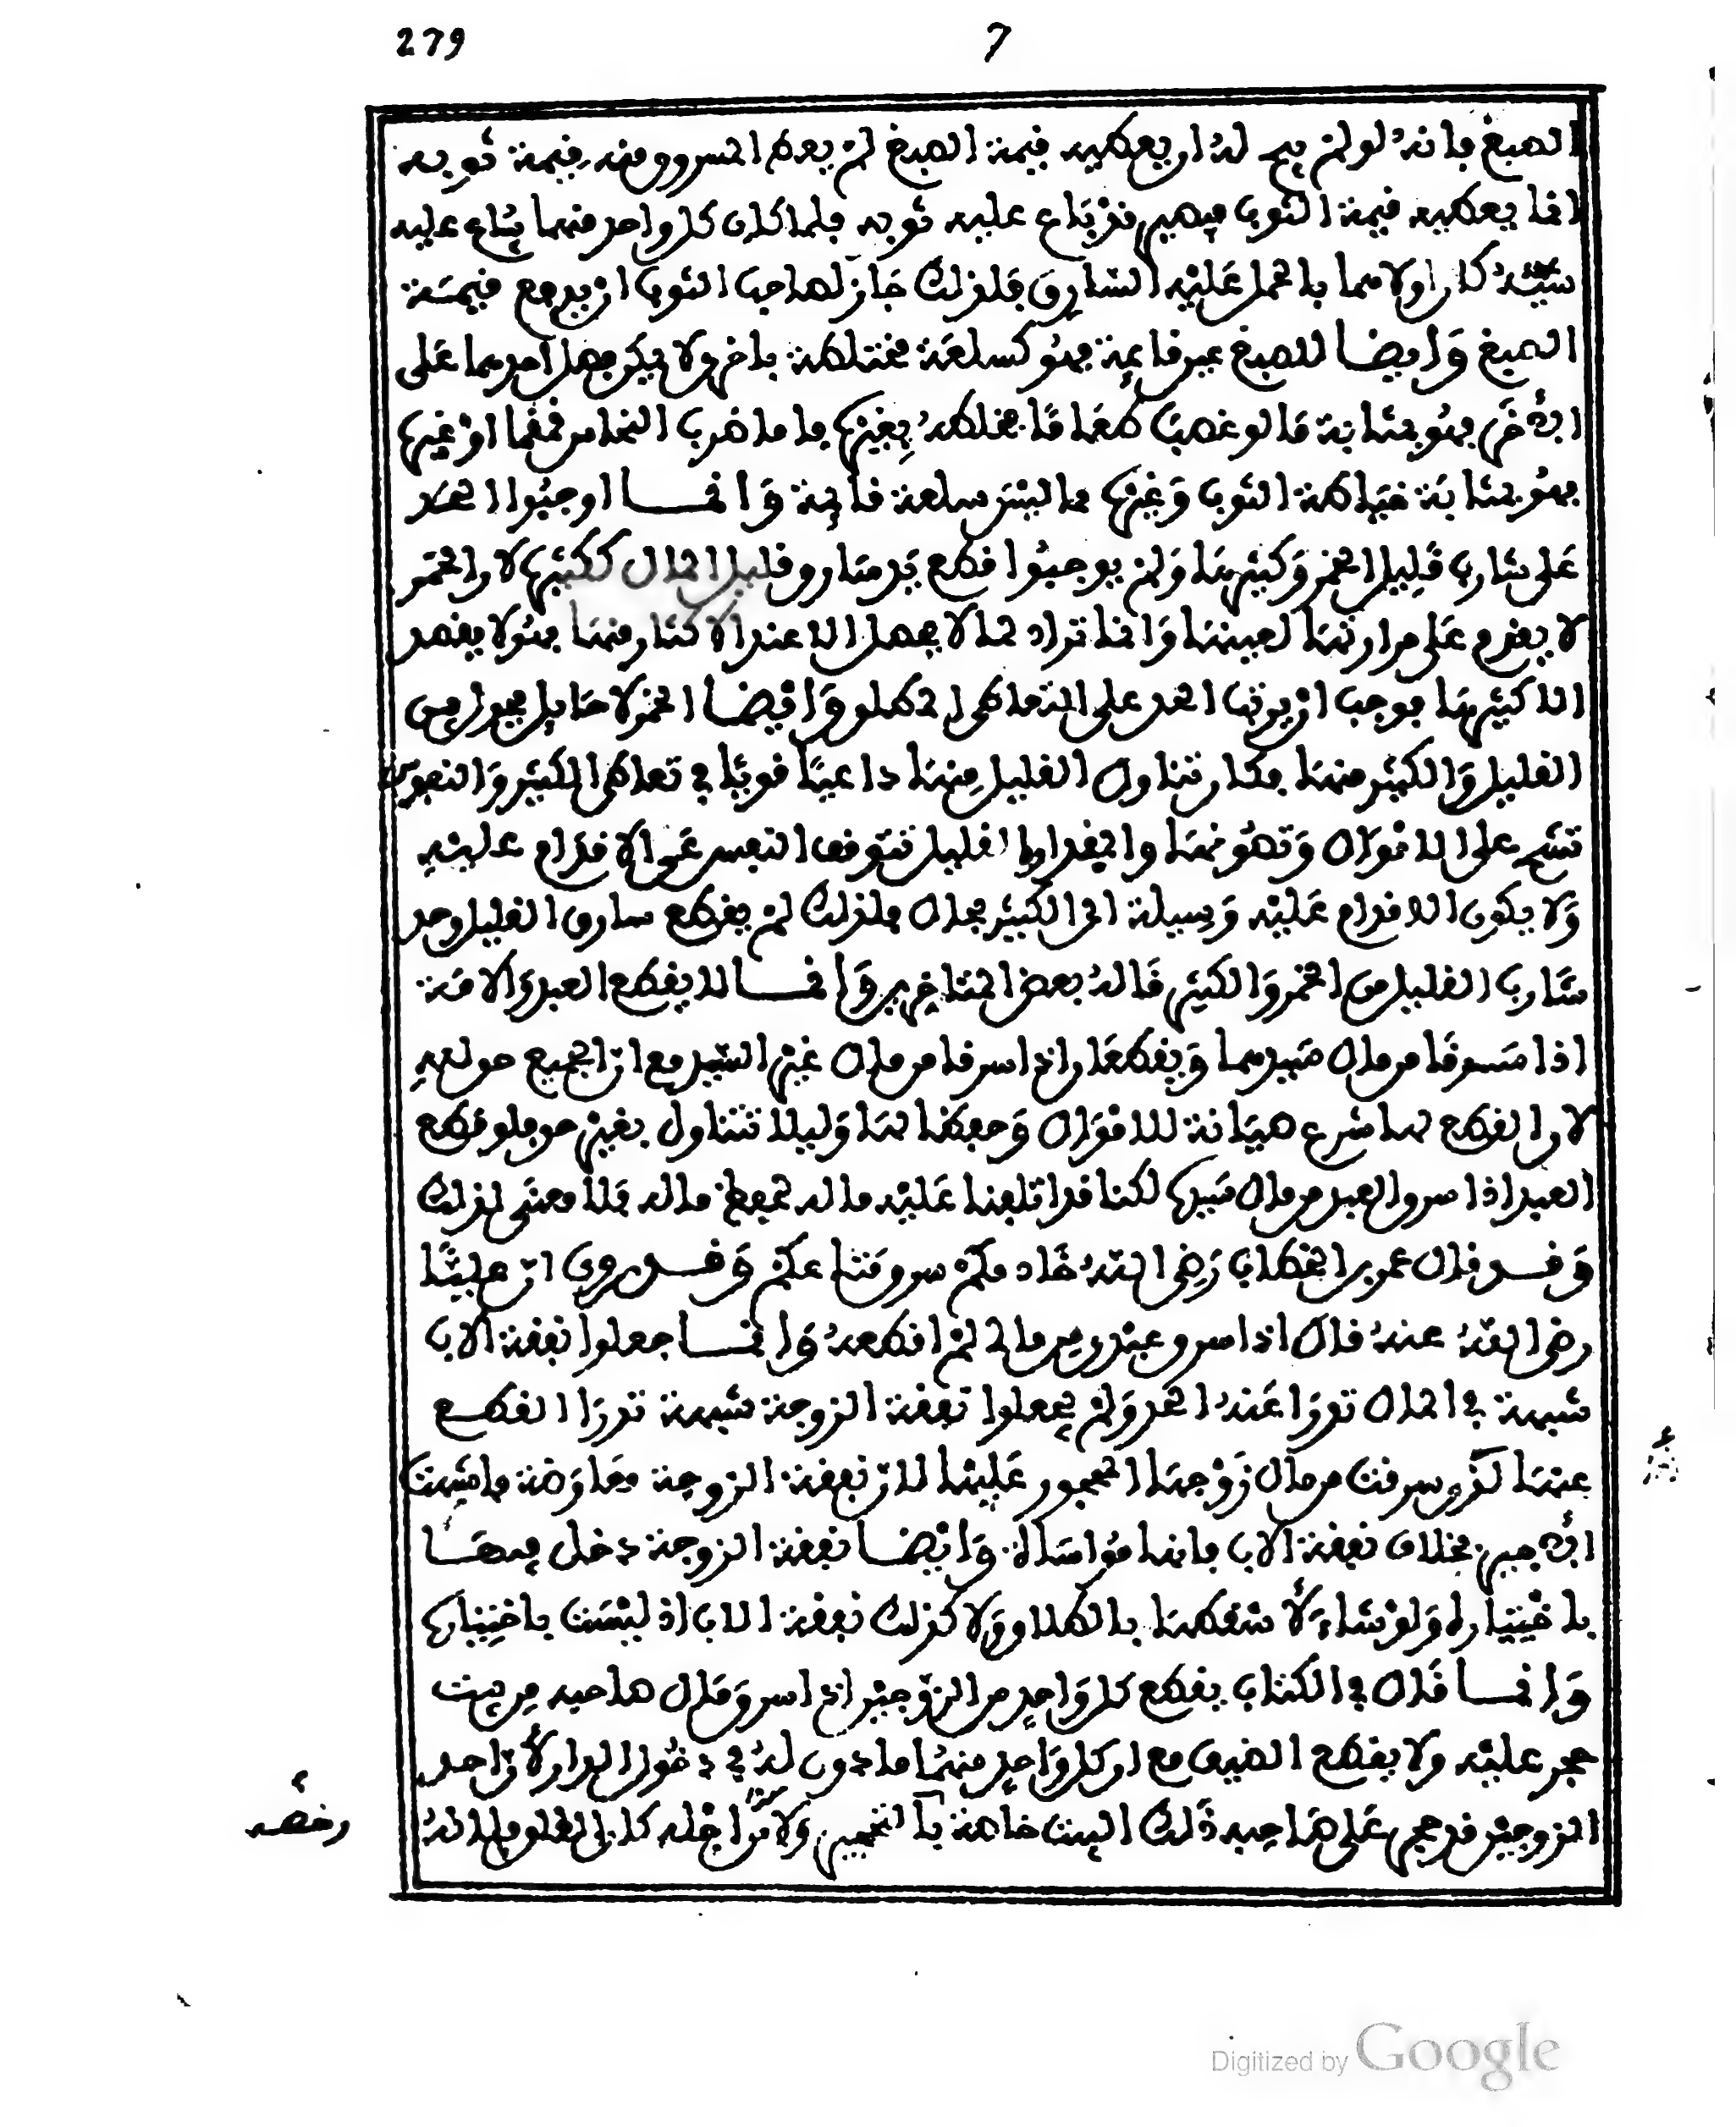 279
7
الصبغ فإنه لو لم يبح له أن يعطيه قيمة الصبغ لم يعط المسروق منه قيمة ثوبه
إنما يعطيه قيمة الثوب فيصير قد يباع عليه ثوبه فلما كان كل واحد منهما يباع عليه
شيئه كان أولاهما بالحمل عليه السارق فلذلك جاز لصاحب الثوب أن يدفع قيمة
الصبغ وَأيضا للصبغ عين قائمة فهو كسلعة مختلطة بأخرى لا يمكن فصل أحدهما على
الأخرى فهو بمثابة ما لو غصب طعامًا فخلطه بغيره فأما ضرب النحاس قمقما أو غيره
فهو بمثابة خياطة الثوب وَغيره مما ليس سلعة قائمة وَإنما أوجبوا الحد
عَلى شارب قَليل الخمر وَكثيرها وَلم يوجبوا قطع يد سارق قليل المال ككثيره لأن الخمر
لا يقدم على مرارتها لعينها وَإنما تراد لما لا يحصل إلا عند الإكثار منها فهو لا يقصد
إلا كثيرها فوجب أن يرتب الحد على التعاطي المطلق وَأيضا الخمر لا حايل يحول بين
القليل وَالكثير منها فكان تناول القليل منها داعيًا قويًا في تعاطي الكثير وَالنفوس
تشح على الأموال وَتصونها والمقدار القليل تتوقف النفس عَن الإقدام عليه
وَلا يكون الإقدام عَليه وَسيلة إلى الكثير بحال فلذلك لم يقطع سارق القليل وحد
شَارب القليل من الخمر وَالكثير قَاله بعض المتأخرين وَإنما لا يقطع العبد وَالأمة
إذا سَرقا من مال سَيدهما وَيقطعَان إذا سرقا من مال غير السيد مع أن الجميع حق لغيره
لأن القطع إنما شرع صيَانة للأموال وَحفظا لها وَليلا تتناول بغير حق فلو قطع
العبد إذا سرق العبد من مال سَيده لكنا قد أتلفنا عَليه ماله لحفظ ماله فلا معنى لذلك
وَقد قال عمر بن الخطاب رَضي الله خَادمكم سرق متاعكم وَقد روي أن عليًا
رضي الله عنه قال إذا سرق عبدي من مالي لم أقطعه وَإنما جعلوا نفقة الأب
شبهة في المال تدرَأ عَنه الحد وَلم يجعلوا نفقة الزوجة شبهة تدرَأ القطع
عنها لو سرقت من مال زَوجها المحجور عَليها لأن نفقة الزوجة معَاوَضة فأشبهت
الأجير بخلاف نفقة الأب فإنها مؤاساة وَأيضا نفقة الزوجة دخل فيها
باختياره وَلو شاء لأسقطها بالطلاق وَلا كذلك نفقة الأب إذ ليست باختياره
وَإنما قَال في الكتاب يقطع كل وَاحد من الزوجين إذا سرق مَال صاحبه من بيت
حجر عليه ولا يقطع الضيف مع أن كل وَاحد منهما مأذون له في دخول الدار لأن أحد
الزوجين قد حجر عَلى صَاحبه ذَلك البيت خاصة بالتحجير وَلأن من أجله كان الغلق فلم الله
رخصه
Digitized by Google